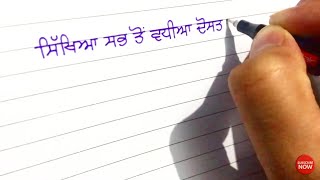 ਸਿੱਖਿਆ ਸਭ ਤੋਂ ਵਧੀਆ ਦੋਸਤ
SUBSCRIBE
NOW